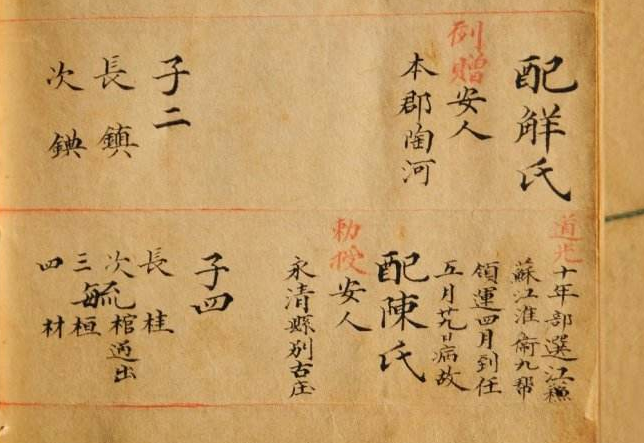 配觧氏
例贈安人
本郡陶河
子二
長鎮
次
道光十年部選江
蘇江淮衛九帮
領運四月到任
五月廿九日病故
配陳氏
勅授安人
永清縣別古庄
子四
長桂
次毓棺過出
三桓
四材